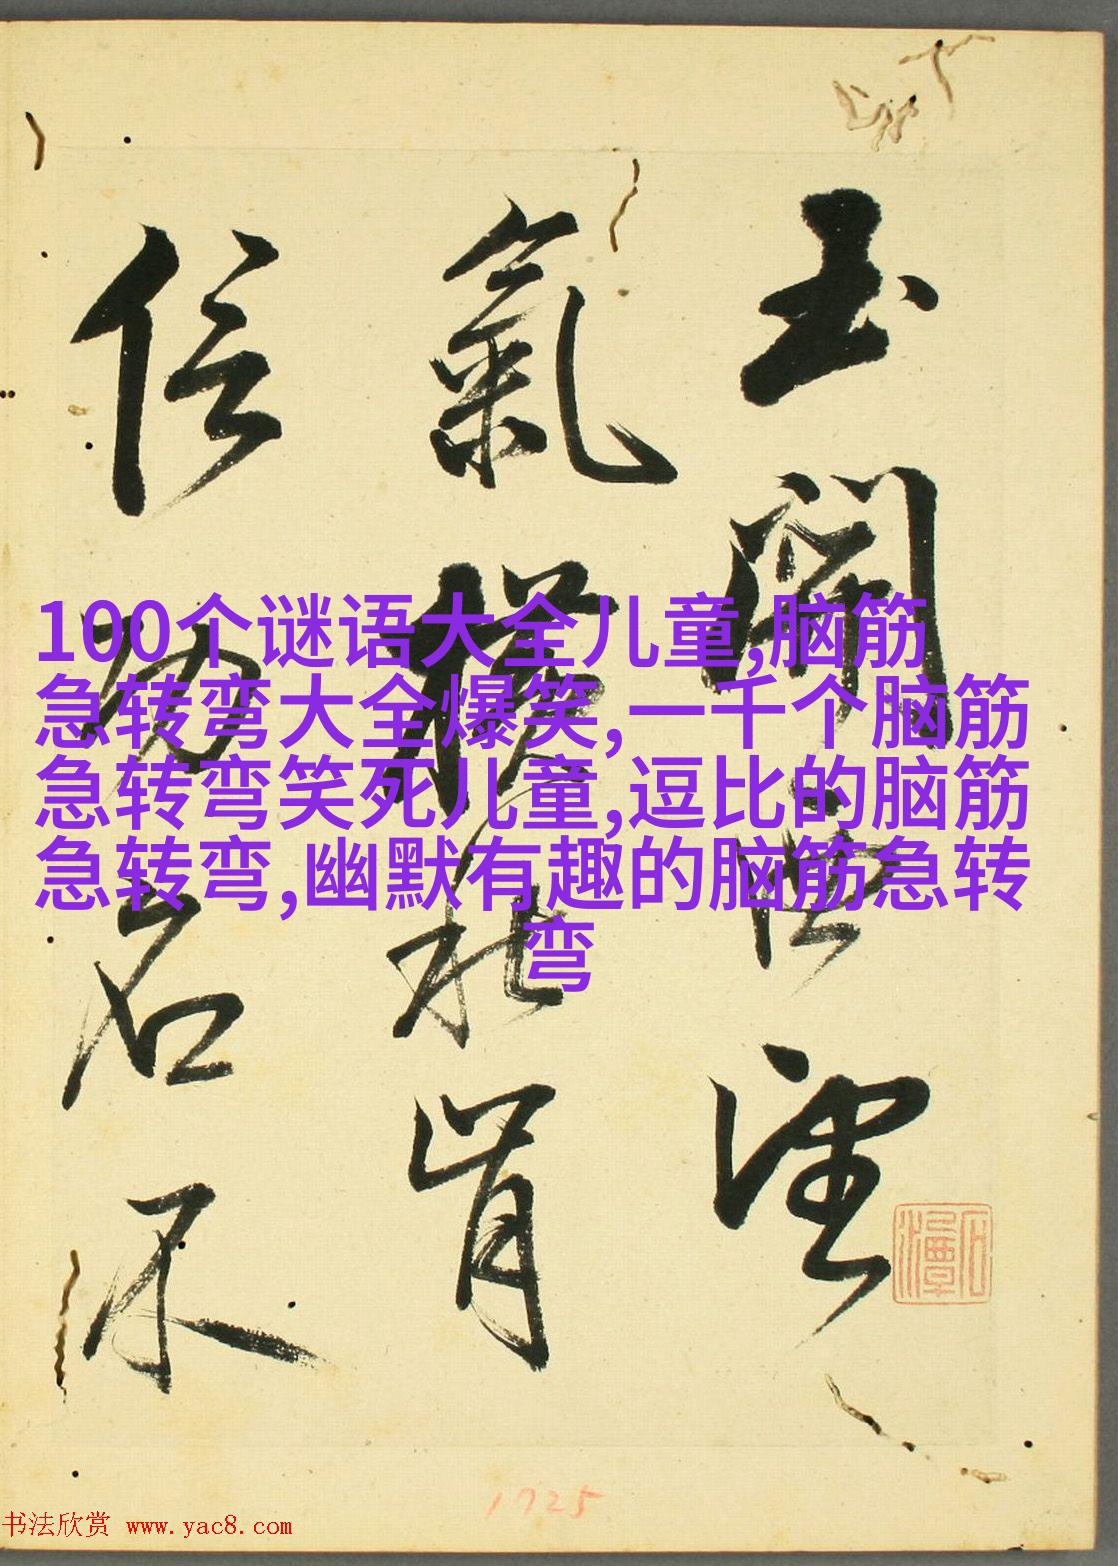 玉關西望
氣橫秋肯
信功名不
100个谜语大全儿童,脑筋
急转弯大全爆笑,一千个脑筋
急转弯笑死儿童,逗比的脑筋
急转弯,幽默有趣的脑筋急转
弯
1725
书法欣赏 www.yac8.com